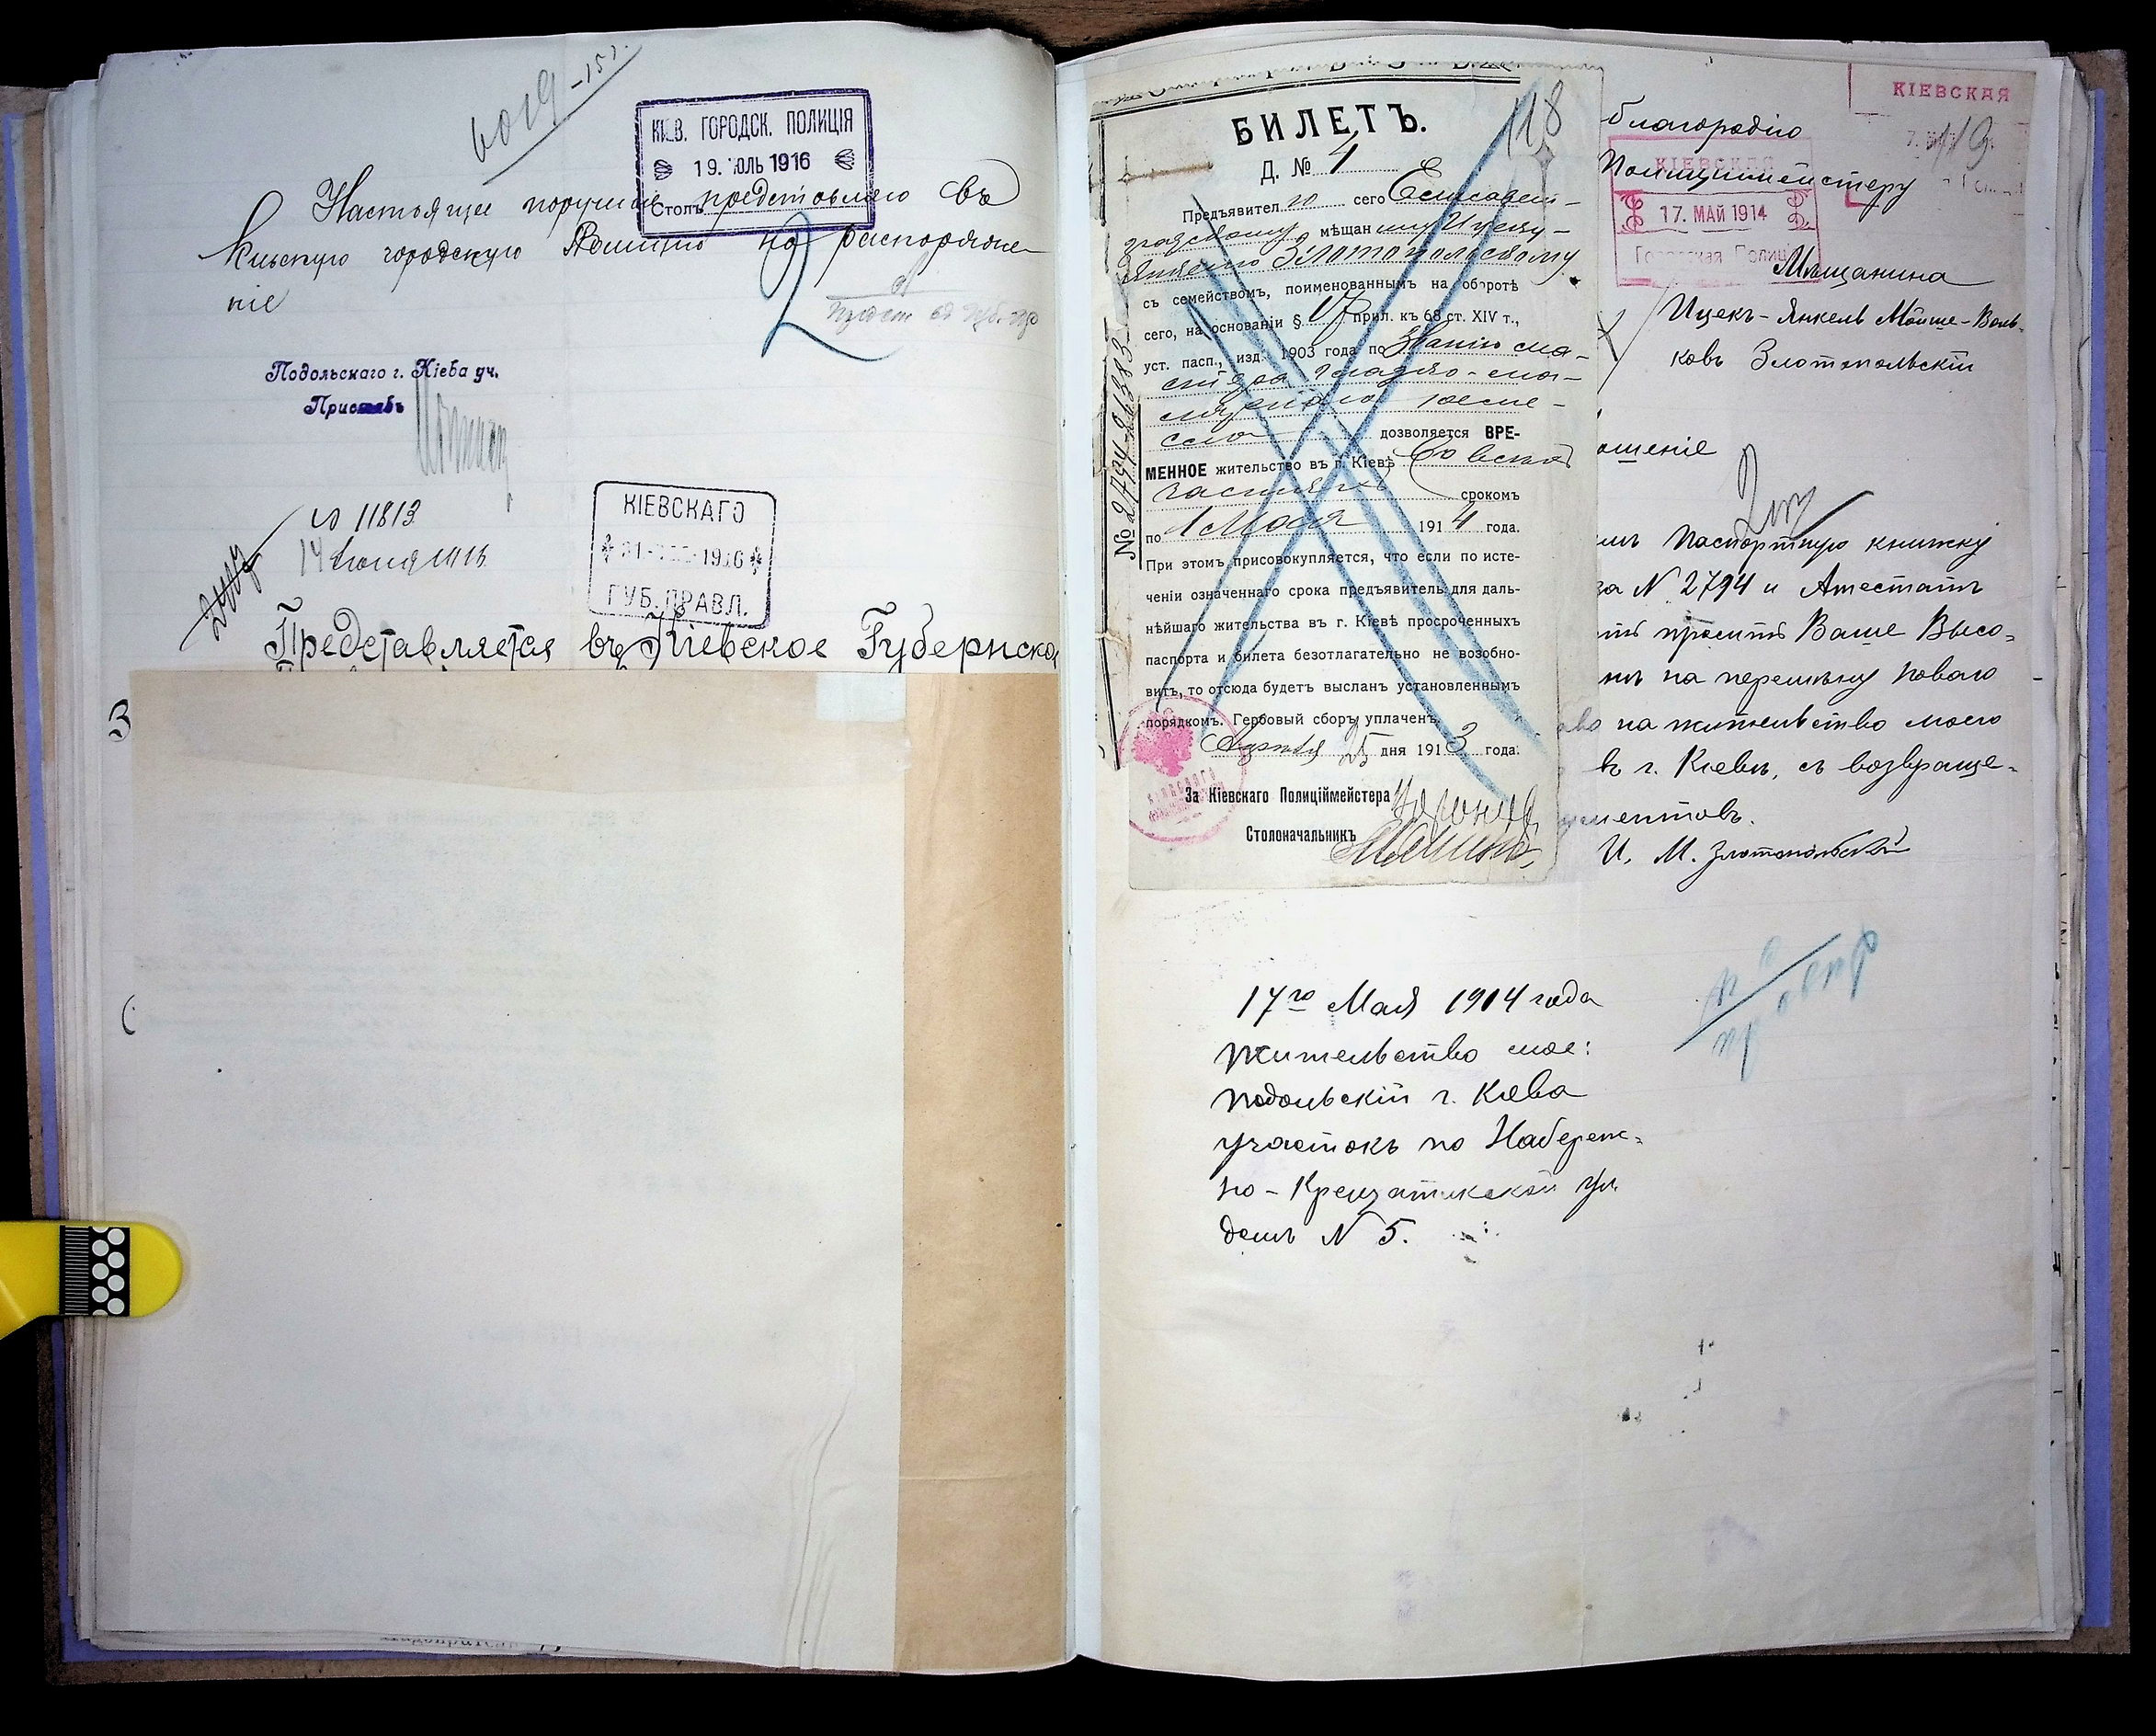 6019-15 г.
КІЕВ. ГОРОДСК. ПОЛИЦІЯ
19. ЮЛЬ 1916
Столъ
Настоящее порученіе представляю въ
Кіевскую городскую Полицію на распоряже-
ніе
2
Подольскаго г. Кіева уч.
Приставъ
N 11813
14 Іюля 1916
КІЕВСКАГО
1916
ГУБ. ПРАВЛ.
Представляется въ Кіевское Губернско
БИЛЕТЪ.
118
Д. № 1
Предъявителю сего Елисавет-
градскому мѣщанину Ицеку-
Янкелю Златопольскому
съ семействомъ, поименованнымъ на оборотѣ
сего, на основаніи § 17 прил. къ 68 ст. XIV т.,
уст. пасп., изд. 1903 года по званію ма-
стера
ремe-
сла дозволяется ВРЕ-
МЕННОЕ жительство въ г. Кіевѣ во всѣхъ
частяхъ срокомъ
по 1 Мая 1914 года.
При этомъ присовокупляется, что если по исте-
ченіи означеннаго срока предъявитель для даль-
нѣйшаго жительства въ г. Кіевѣ просроченныхъ
паспорта и билета безотлагательно не возобно-
витъ, то отсюда будетъ высланъ установленнымъ
порядкомъ. Гербовый сборъ уплаченъ.
Апрѣля 25 дня 1913 года.
За Кіевскаго Полиціймейстера
Столоначальникъ
КІЕВСКАЯ
119
благородію
Полицимейстеру
КІЕВСКАЯ
17. МАЙ 1914
Городская Полиц
Мѣщанина
Ицекъ-Янкель Мойше-Воль-
ковъ Златопольскій
ошеніе
мъ Паспортную книжку
за N 2794 и Атестатъ
просить Ваше Высо-
на перемѣну новаго
во на жительство моего
въ г. Кіевѣ, съ возвраще-
ументовъ.
И. М. Златопольскій
17го Мая 1914 года
Жительство мое:
подольскій г. Кіева
участокъ по Набереж-
но-Крещатикской ул.
домъ N 5.